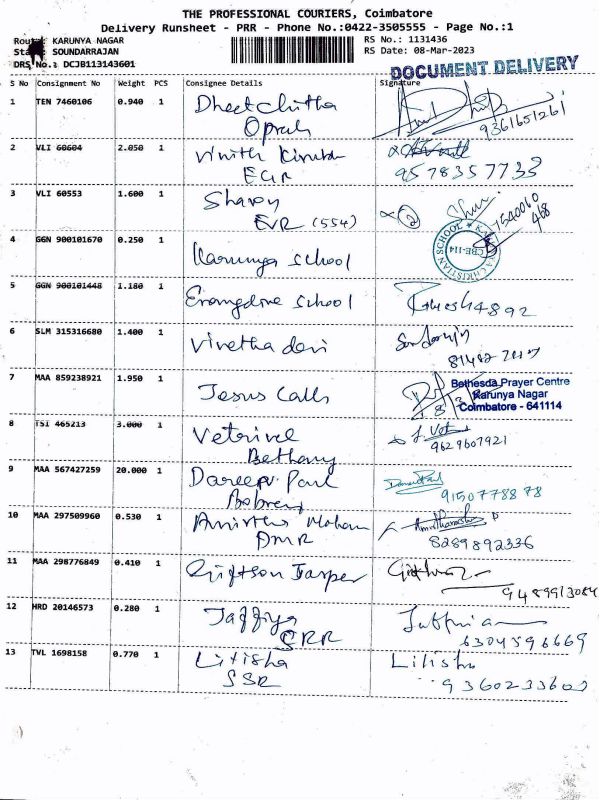 THE PROFESSIONAL COURIERS, Coimbatore
Delivery Runsheet - PRR - Phone No.:0422-3505555 - Page No.:1
KARUNYA NAGAR
RS No.: 1131436
SOUNDARRAJAN
RS Date: 08-Mar-2023
DRS No.: DCJB113143601
DOCUMENT DELIVERY
S No Consignment No Weight PCS Consignee Details Signature
1 TEN 7460106 0.940 1 Dheetchitha
Oprah
9361651261
2 VLI 60604 2.050 1 Vinith
EGR
9578357733
3 VLI 60553 1.600 1 Sharon
EVR (554)
4 GGN 900101670 0.250 1 Karunya School
KARUNYA CHRISTIAN SCHOOL
CBE-114
5 GGN 900101448 1.180 1 School
4892
6 SLM 315316680 1.400 1 Vinetha devi
7 MAA 859238921 1.950 1 Jesus Calls
Bethesda Prayer Centre
Karunya Nagar
Coimbatore - 641114
8 TSI 465213 3.000 1 Vetrivel
Bethany
9629607921
9 MAA 567427259 20.000 1 Paul
9150778878
10 MAA 297509960 0.530 1 Mohan
DMR
8289892336
11 MAA 298776849 0.410 1 Giftson Jasper
9489913084
12 HRD 20146573 0.280 1 Jaffiya
SRR
6304596669
13 TVL 1698158 0.770 1 Litisha
SSR